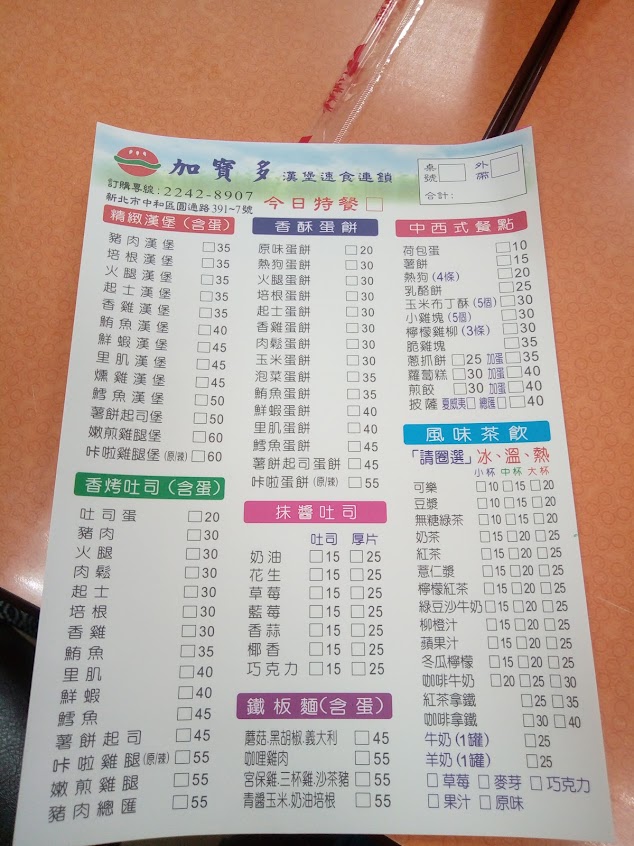 加寶多 漢堡速食連鎖
訂購專線:2242-8907
新北市中和區圓通路391~7號
今日特餐□
桌號□ 外帶□
合計:
精緻漢堡(含蛋)
豬肉漢堡 □35
培根漢堡 □35
火腿漢堡 □35
起士漢堡 □35
香雞漢堡 □35
鮪魚漢堡 □40
鮮蝦漢堡 □45
里肌漢堡 □45
燻雞漢堡 □45
鱈魚漢堡 □50
薯餅起司堡 □50
嫩煎雞腿堡 □60
咔啦雞腿堡(原/辣) □60
香烤吐司(含蛋)
吐司蛋 □20
豬肉 □30
火腿 □30
肉鬆 □30
起士 □30
培根 □30
香雞 □30
鮪魚 □35
里肌 □40
鮮蝦 □40
鱈魚 □45
薯餅起司 □45
咔啦雞腿(原/辣) □55
嫩煎雞腿 □55
豬肉總匯 □55
香酥蛋餅
原味蛋餅 □20
熱狗蛋餅 □30
火腿蛋餅 □30
培根蛋餅 □30
起士蛋餅 □30
香雞蛋餅 □30
肉鬆蛋餅 □30
玉米蛋餅 □30
泡菜蛋餅 □35
鮪魚蛋餅 □35
鮮蝦蛋餅 □40
里肌蛋餅 □40
鱈魚蛋餅 □45
薯餅起司蛋餅 □45
咔啦蛋餅(原/辣) □55
抹醬吐司
吐司 厚片
奶油 □15 □25
花生 □15 □25
草莓 □15 □25
藍莓 □15 □25
香蒜 □15 □25
椰香 □15 □25
巧克力 □15 □25
鐵板麵(含蛋)
蘑菇.黑胡椒.義大利 □45
咖哩雞肉 □55
宮保雞.三杯雞.沙茶豬 □55
青醬玉米.奶油培根 □55
中西式餐點
荷包蛋 □10
薯餅 □15
熱狗(4條) □20
乳酪餅 □25
玉米布丁酥(5個) □30
小雞塊(5個) □30
檸檬雞柳(3條) □30
脆雞塊 □35
蔥抓餅 □25 加蛋□35
蘿蔔糕 □30 加蛋□40
煎餃 □30 加蛋□40
披薩 夏威夷□ 總匯□ □40
風味茶飲
「請圈選」冰、溫、熱
小杯 中杯 大杯
可樂 □10 □15 □20
豆漿 □10 □15 □20
無糖綠茶 □10 □15 □20
奶茶 □15 □20 □25
紅茶 □15 □20 □25
薏仁漿 □15 □20 □25
檸檬紅茶 □15 □20 □25
綠豆沙牛奶 □15 □20 □25
柳橙汁 □15 □20 □25
蘋果汁 □15 □20 □25
冬瓜檸檬 □15 □20 □25
咖啡牛奶 □20 □25 □30
紅茶拿鐵 □25 □35
咖啡拿鐵 □30 □40
牛奶(1罐) □25
羊奶(1罐) □25
□草莓 □麥芽 □巧克力
□果汁 □原味